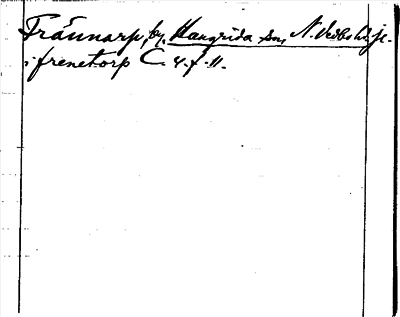 Trännarp, by, Haugrida sn, N. Åsbo hd, je.
i frenetorp C. 4. f. 11.